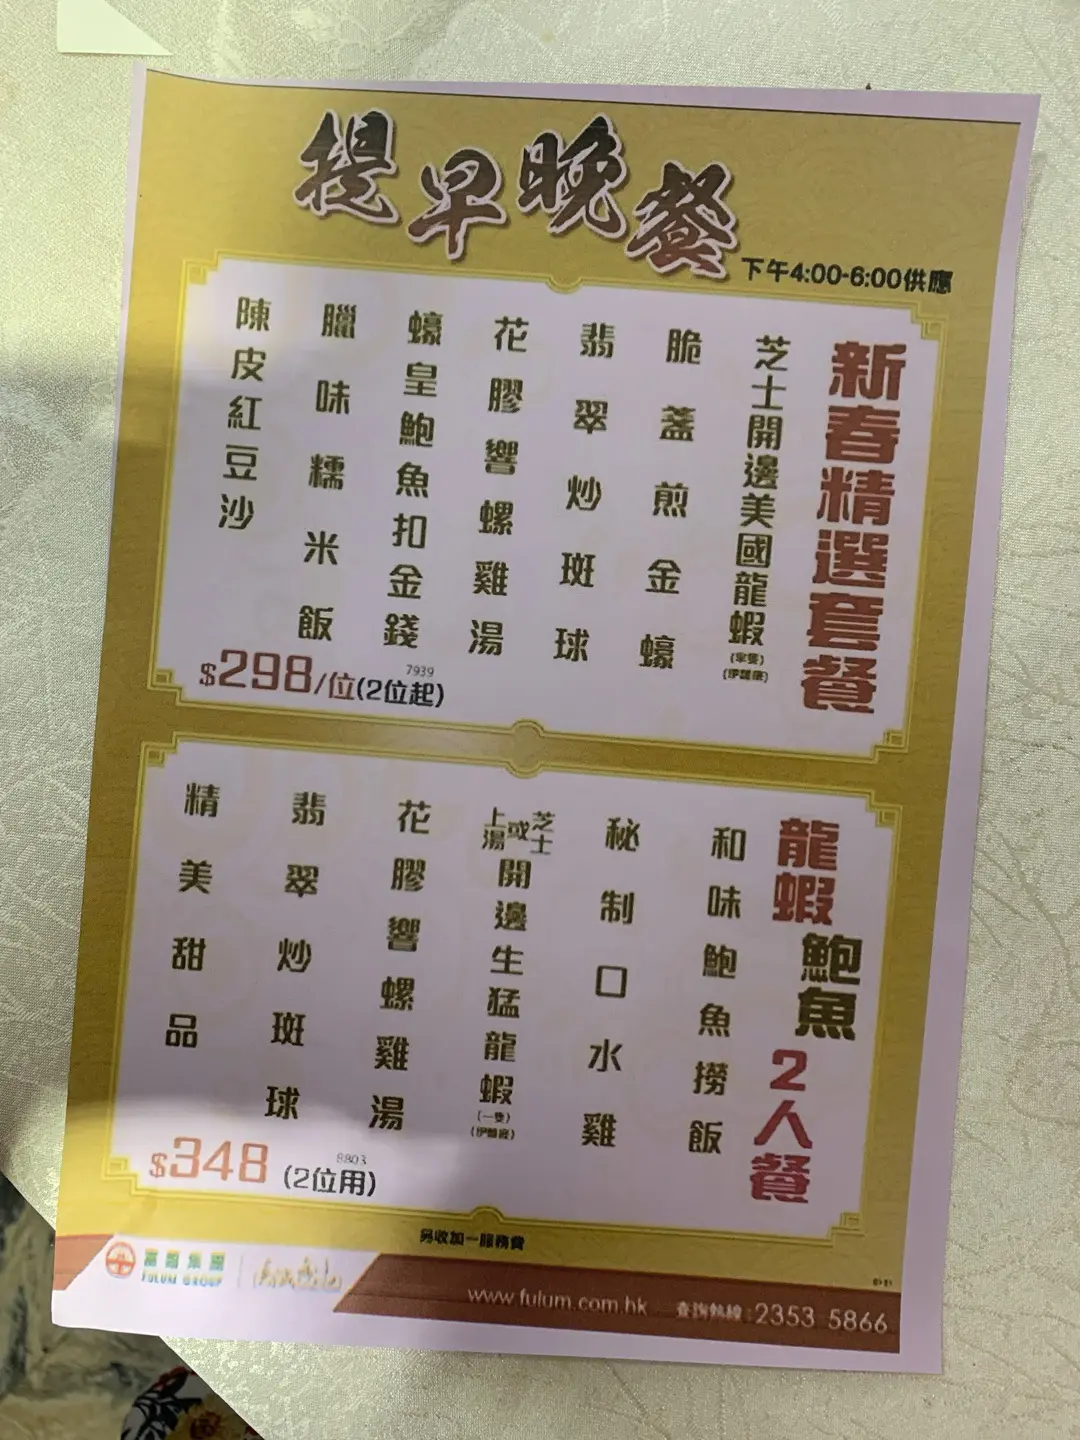 提早晚餐
下午4:00-6:00供應
新春精選套餐
芝士開邊美國龍蝦
脆盞煎金蠔
翡翠炒斑球
花膠響螺雞湯
蠔皇鮑魚扣金錢
臘味糯米飯
陳皮紅豆沙
7939
$298/位(2位起)
龍蝦
鮑魚
2人餐
和味鮑魚撈飯
秘制口水雞
上湯或芝士開邊生猛龍蝦
(一隻)
花膠響螺雞湯
翡翠炒斑球
精美甜品
8803
$348 (2位用)
另收加一服務費
富臨集團
FULUM GROUP
www.fulum.com.hk 查詢熱線:2353 5866